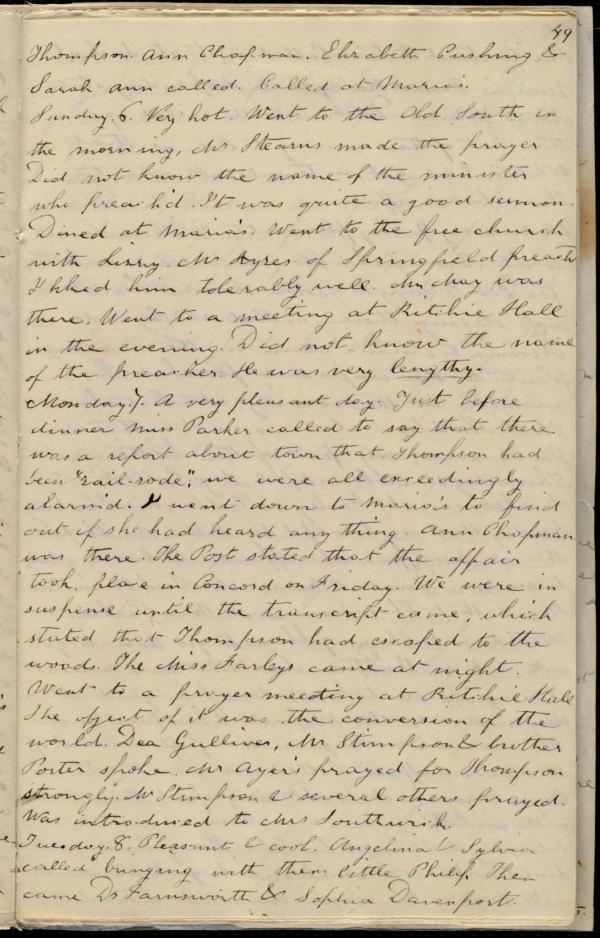 89
Thompson. Ann Chapman. Elizabeth Cushing &
Sarah Ann called. Called at Maria's.
Sunday. 6. Very hot. Went to the Old South in
the morning, Mr Stearns made the prayer
Did not know the name of the minister
who preach'd. It was quite a good sermon.
Dined at Maria's. Went to the free church
with Lizzy. Mr Ayres of Springfield preach'd
I liked him tolerably well. Mr May was
there. Went to a meeting at Ritchie Hall
in the evening. Did not know the name
of the preacher. He was very lengthy.
Monday. 7. A very pleasant day. Just before
dinner Miss Parker called to say that there
was a report about town that Thompson had
been "rail-rode"; we were all exceedingly
alarm'd. I went down to Maria's to find
out if she had heard any thing. Ann Chapman
was there. The Post stated that the affair
took place in Concord on Friday. We were in
suspense until the transcript came, which
stated that Thompson had escaped to the
woods. The Miss Farleys came at night.
Went to a prayer meeting at Ritchie Hall
The object of it was the conversion of the
world. Dea Gulliver, Mr Stimpson & brother
Porter spoke. Mr Ayer's prayed for Thompson
strongly. Mr Stimpson & several others prayed.
Was introduced to Mrs Southwick.
Tuesday. 8. Pleasant & cool. Angelina & Sylvia
called bringing with them little Philip. Then
came Dr Farnsworth & Sophia Davenport.